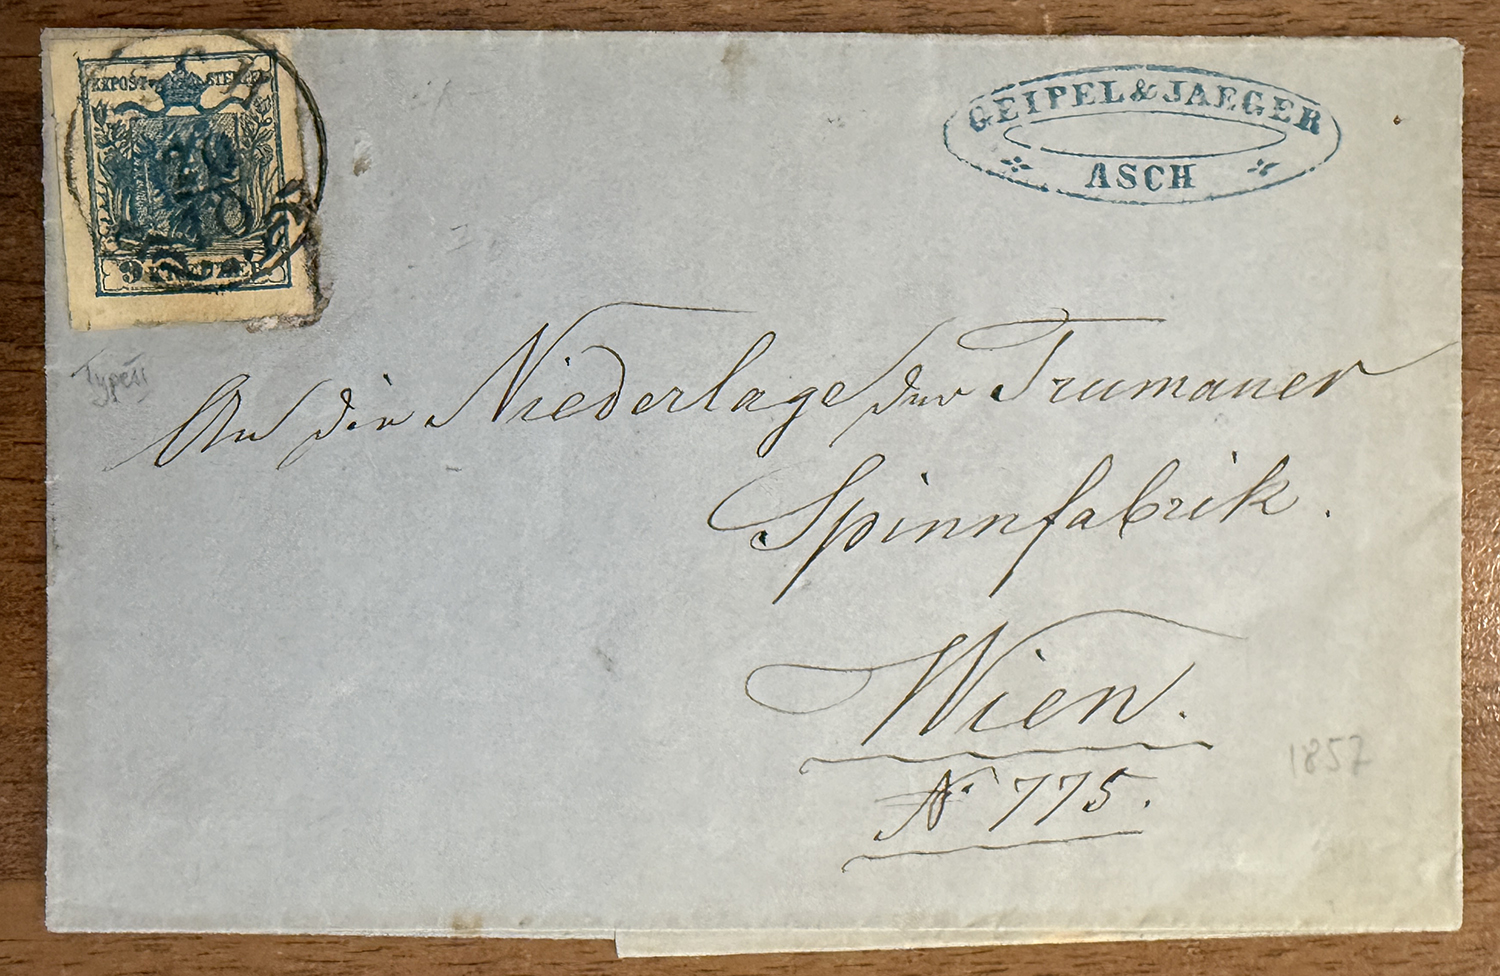 KKPOST-STEMPEL
9 KREUZER
GEIPEL & JAEGER
ASCH
An die Niederlage der Trumauer
Spinnfabrik.
Wien.
N° 775.
1857